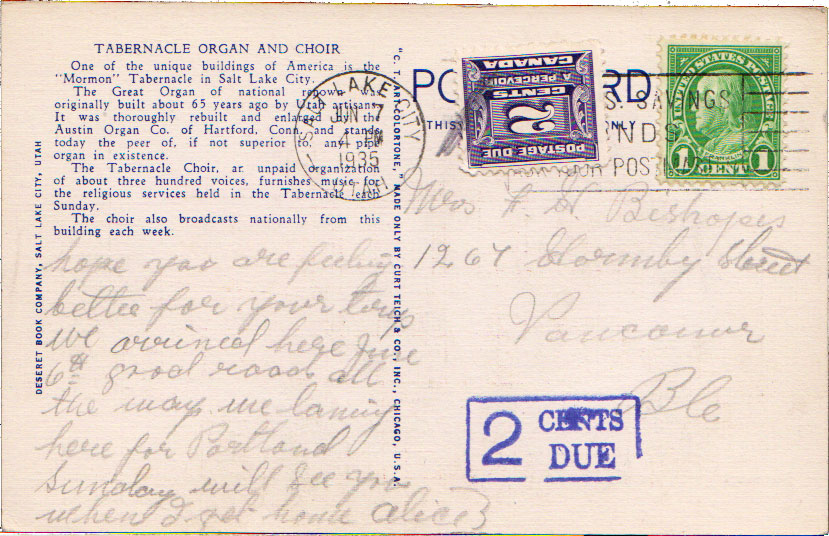 TABERNACLE ORGAN AND CHOIR
One of the unique buildings of America is the
"Mormon" Tabernacle in Salt Lake City.
The Great Organ of national renown was
originally built about 65 years ago by Utah artisans.
It was thoroughly rebuilt and enlarged by the
Austin Organ Co. of Hartford, Conn. and stands
today the peer of, if not superior to, any pipe
organ in existence.
The Tabernacle Choir, an unpaid organization
of about three hundred voices, furnishes music for
the religious services held in the Tabernacle each
Sunday.
The choir also broadcasts nationally from this
building each week.
DESERET BOOK COMPANY, SALT LAKE CITY, UTAH
"C. T. ART-COLORTONE," MADE ONLY BY CURT TEICH & CO., INC., CHICAGO, U.S.A.
hope you are feeling
better for your
we arrived here June
6th good roads all
the way we
here for Portland
Sunday will see you
when I get home Alice B
SALT LAKE CITY
JUN 7
4 PM
1935
PO RD
THIS NLY
CANADA
A PERCEVOIR
2 CENTS
POSTAGE DUE
S. SAVINGS
NDS
POST
UNITED STATES POSTAGE
FRANKLIN
1 CENT 1
Mrs F H
1267 Street
Vancouver
BC
2 CENTS
DUE